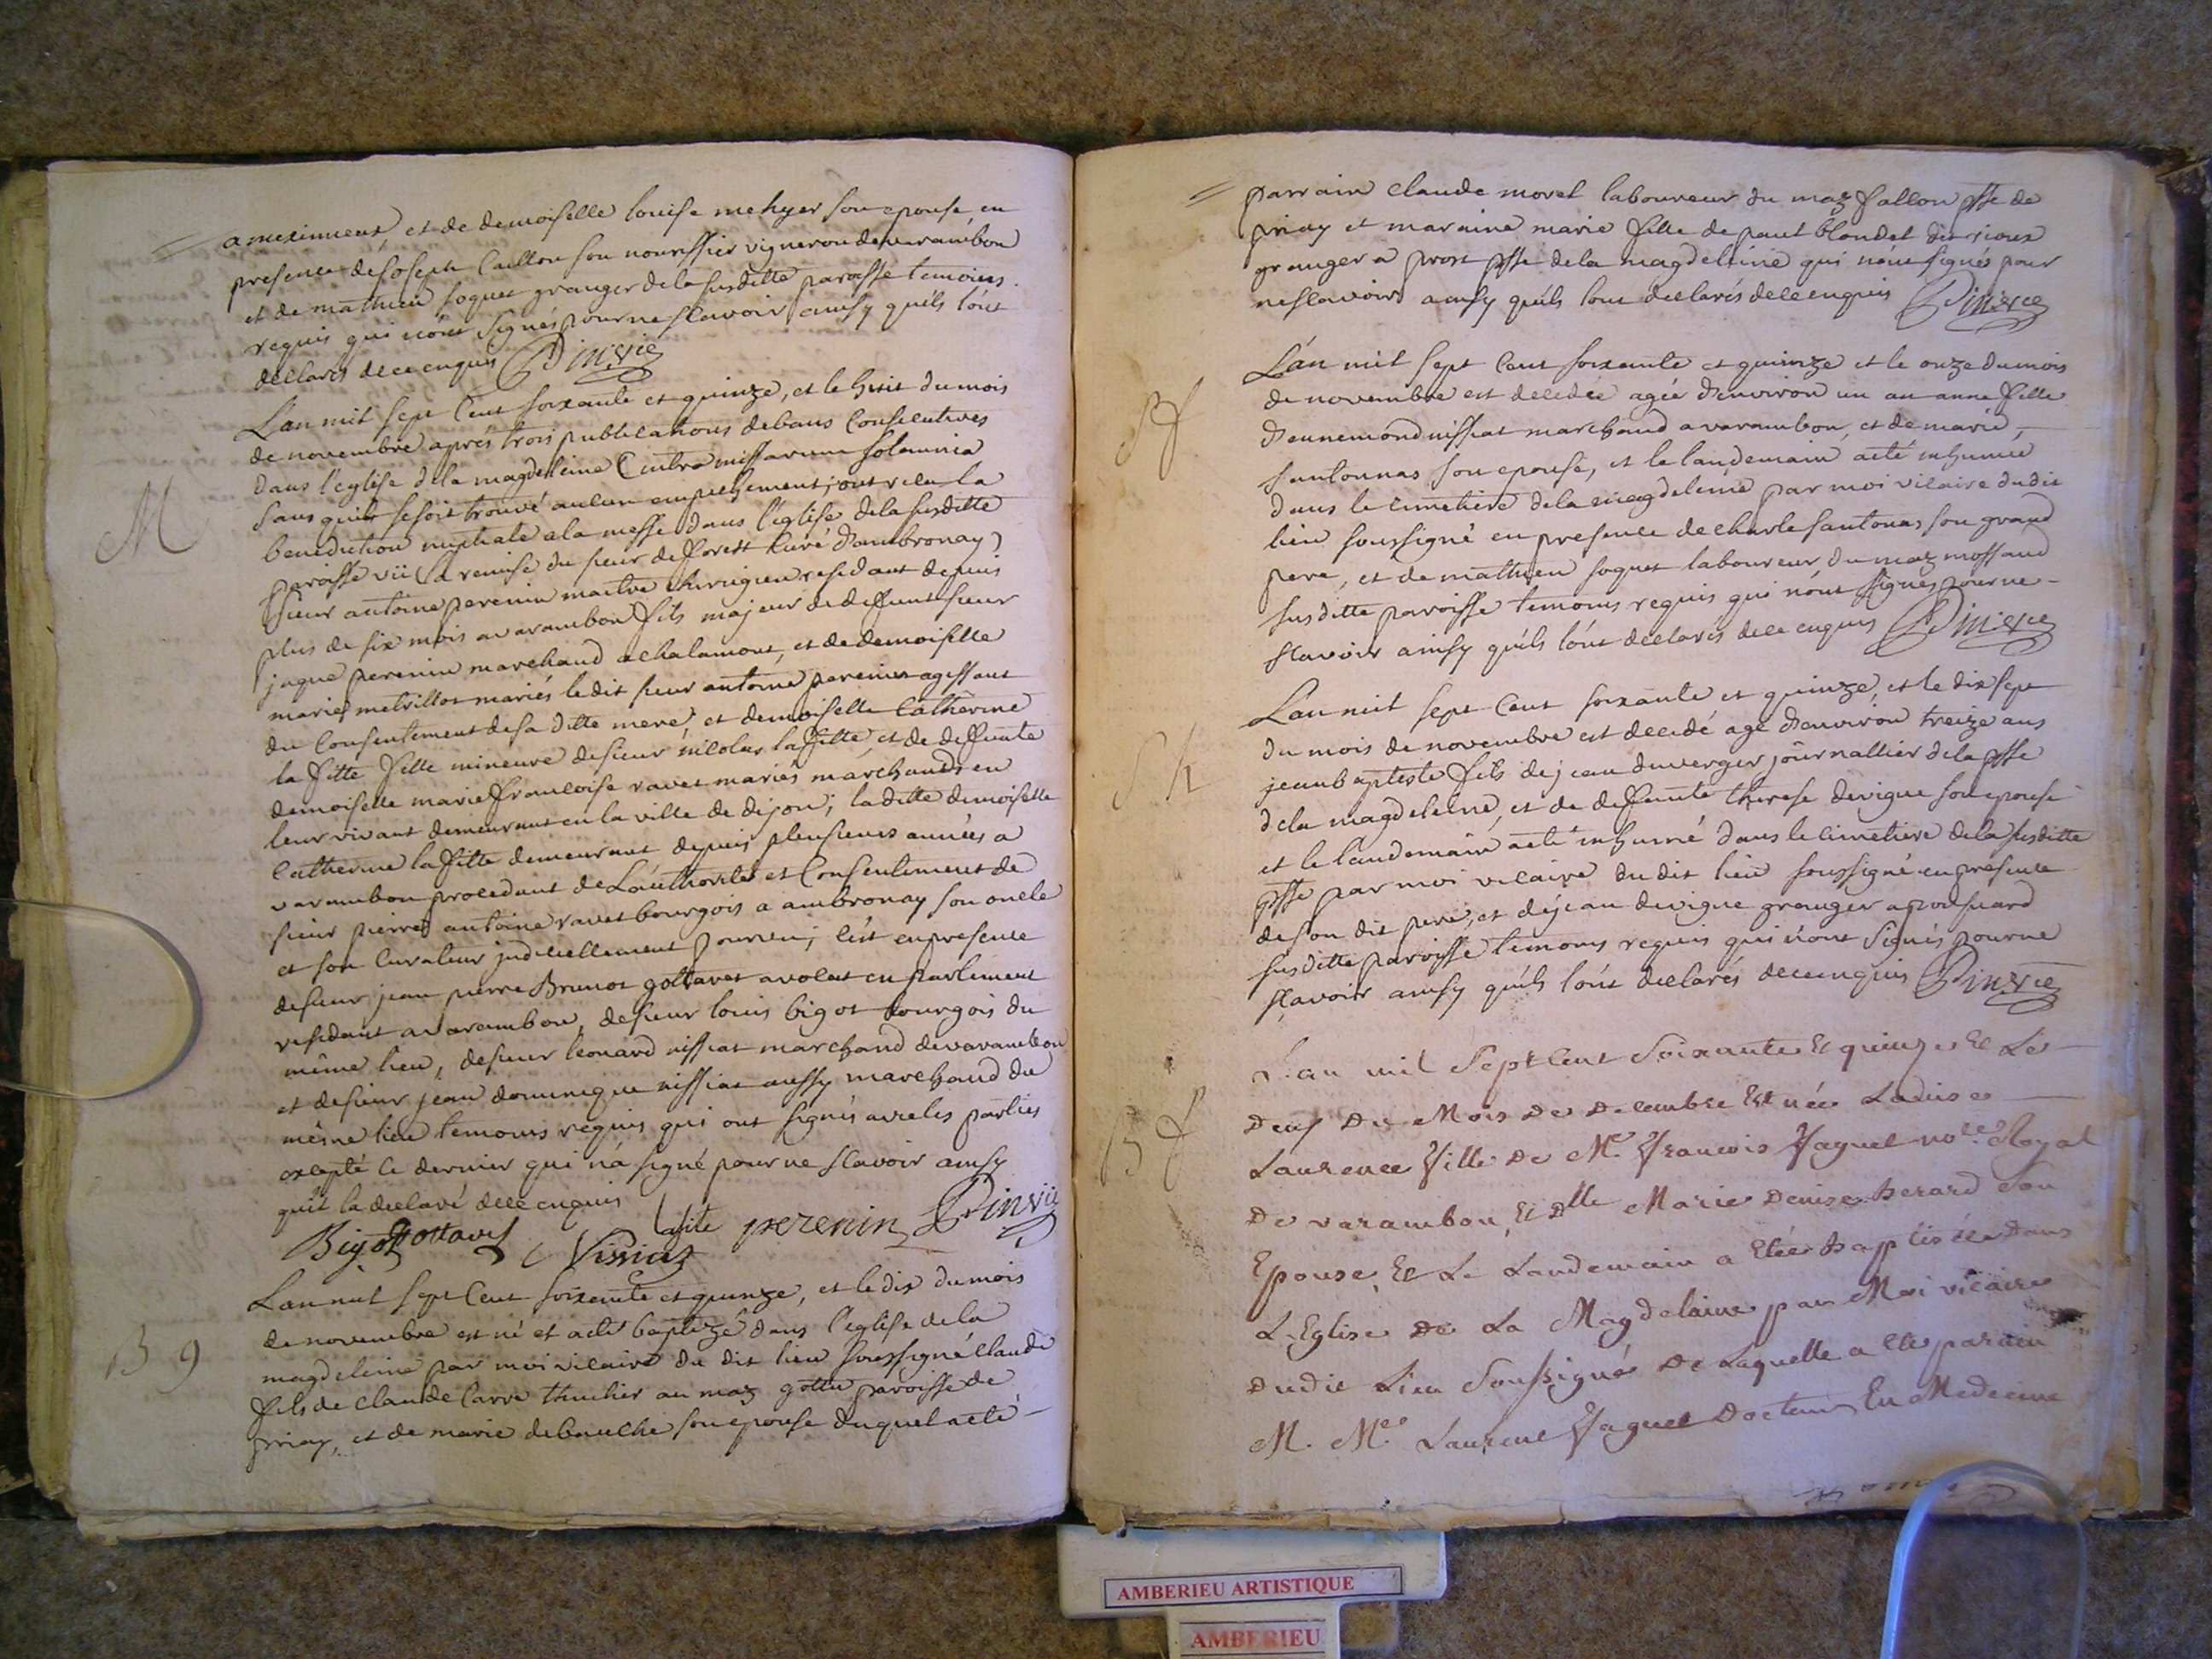 a meximieux et de demoiselle louise mehyer son epouse, en
presence de joseph Caillon son nourissier vigneron de varambon
et de mathieu soquet granger de la susditte paroisse temoins
requis qui n'ont signés pour ne sçavoir ainsy qu'ils l'ont
declarés de ce enquis Pin vic
L'an mil sept Cent soixante et quinze, et le huit du mois
de novembre aprés trois publications de bans Consecutives
M
dans l'eglise de la magdeleine intra missarum solamnia
sans qu'il se soit trouvé aucun empechement, ont reçu la
benediction nuptiale a la messe dans l'église de la susditte
paroisse vü la remise du sieur de forest Curé d'ambronay
sieur antoine perenin maitre chirugien residant depuis
plus de six mois a varambon fils majeur de deffunt sieur
jaque perenin marchand a chalamont, et de demoiselle
marie metrillot mariés le dit sieur antoine perenin agissant
du Consentement de sa ditte mere, et demoiselle Catherine
la fitte fille mineure de sieur nicolas la fitte, et de deffunte
demoiselle marie françoise ravet mariés marchands en
leur vivant demeurant en la ville de dijon; la ditte demoiselle
Catherine la fitte demeurant depuis plusieurs années a
varambon procedant de L'authorité et Consentement de
sieur pierre antoine ravet bourgois a ambronay son oncle
et son Curateur judiciellement pourvu; c'est en presence
de sieur jean pierre Brunot gottavet avocat en parlement
residant a varambon, de sieur louis bigot bourgois du
même lieu, de sieur leonard nissiat marchand de varambon
et de sieur jean dominique nissiat aussy marchand du
même lieu temoins requis qui ont signés avec les parties
excepté le dernier qui n'a signé pour ne sçavoir ainsy
qu'il l'a declaré de ce enquis
Bigot gottavet Nissiat lafite perenin Pin vic
L'an mil sept Cent soixante et quinze, et le dix du mois
B g
de novembre est né et a été baptizé dans l'eglise de la
magdeleine par moi vicaire du dit lieu soussigné Claude
fils de claude Carre thuilier au maz gottu paroisse de
priay, et de marie debauche son epouse duquel a été
parrain claude moret laboureur du maz fallon psse de
priay et maraine marie fille de paul blondet dit rioux
granger a prost psse de la magdeleine qui n'ont signés pour
ne sçavoir ainsy qu'ils l'ont declarés de ce enquis Pin vic
L'an mil sept Cent soixante et quinze et le onze du mois
S f
de novembre est decedée agée d'environ un an anne fille
d'ennemond nissiat marchand a varambon, et de marie
santonnas son epouse, et le landemain a été inhumée
dans le cimetiere de la magdeleine par moi vicaire du dit
lieu soussigné en presence de charle santonas son grand
pere, et de mathieu soquet laboureur du maz mossand
susditte paroisse temoins requis qui n'ont signés pour ne
sçavoir ainsy qu'ils l'ont declarés de ce enquis Pin vic
L'an mil sept Cent soixante et quinze, et le dix sept
S h
du mois de novembre est decedé agé d'environ treize ans
jean baptiste fils de jean duverger journallier de la psse
de la magdeleine, et de deffunte therese devigne son epouse
et le landemain a été inhumé dans le cimetiere de la susditte
psse par moi vicaire du dit lieu soussigné en presence
de son dit pere, et de jean devigne granger a
susditte paroisse temoins requis qui n'ont signés pour ne
sçavoir ainsy qu'ils l'ont declarés de ce enquis Pin vic
L'an mil Sept Cent Soixante Et quinze Et Le
B f
Deux Du Mois De Decembre Est née
Laurence fille De Me François Jaquet nore Royal
De varambon, Et Dlle Marie Denise berard Son
Epouse, Et Le Landemain a Etée baptisée Dans
L'Eglise De La Magdelaine par Moi vicaire
Dudit Lieu Soussigné De Laquelle a Eté parain
M. Me Laurent Jaquet Docteur En Medecine
AMBERIEU ARTISTIQUE
AMBERIEU